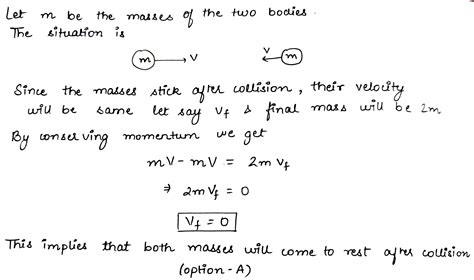 Let m be the masses of the two bodies.
The situation is
m → v v ← m
Since the masses stick after collision, their velocity
will be same let say Vf & final mass will be 2m
By conserving momentum we get
mV - mV = 2m vf
⇒ 2m Vf = 0
Vf = 0
This implies that both masses will come to rest after collision
(option - A)